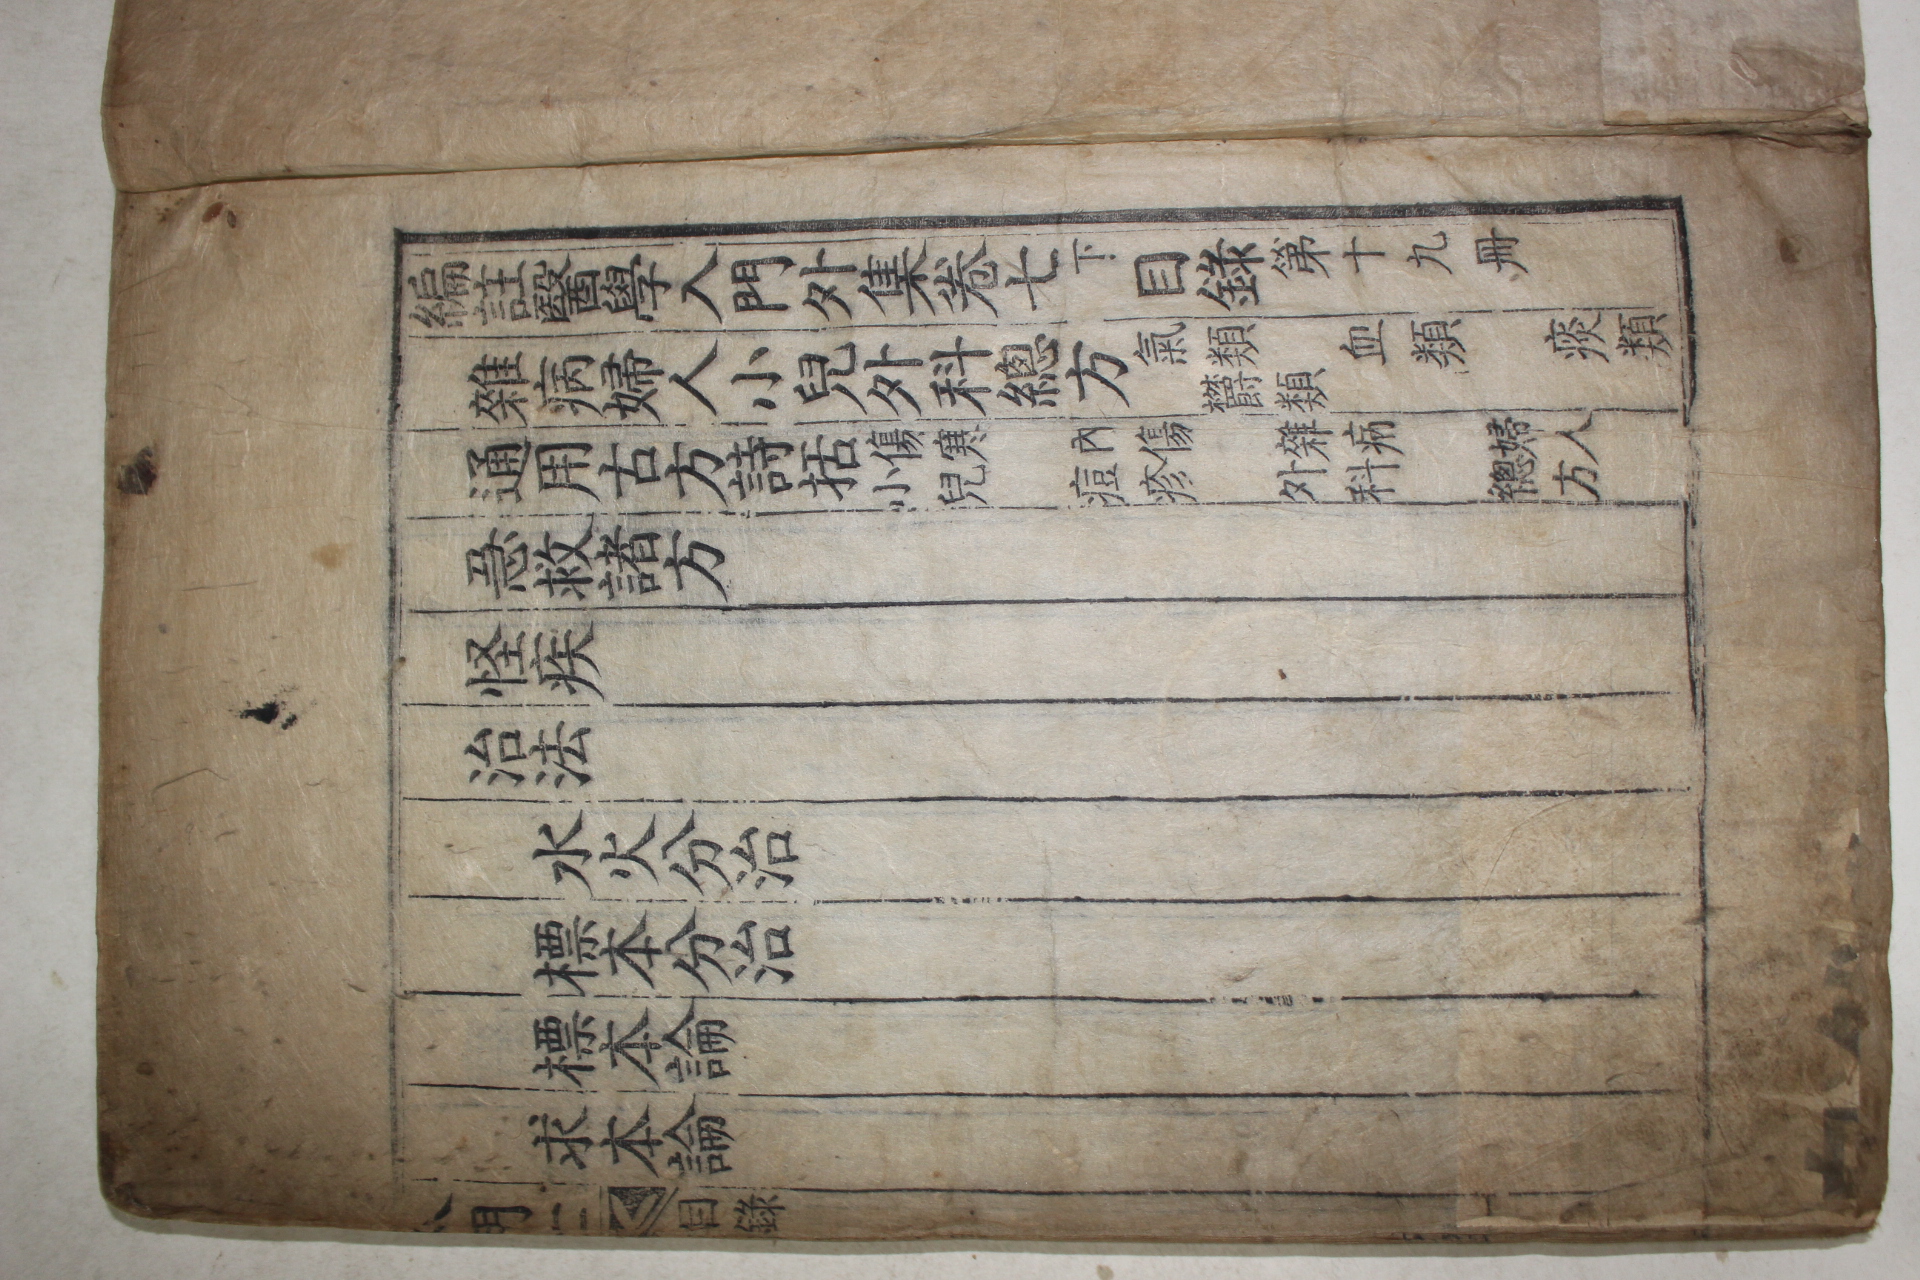 編註醫學入門外集卷七下目錄第十九冊
雜病婦人小兒外科總方氣類 血類 痰類
欝類
通用古方詩括傷寒 內傷 雜病 婦人
小兒 痘疹 外科 總方
急救諸方
怪疾
治法
水火分治
標本分治
標本論
求本論
門 目錄